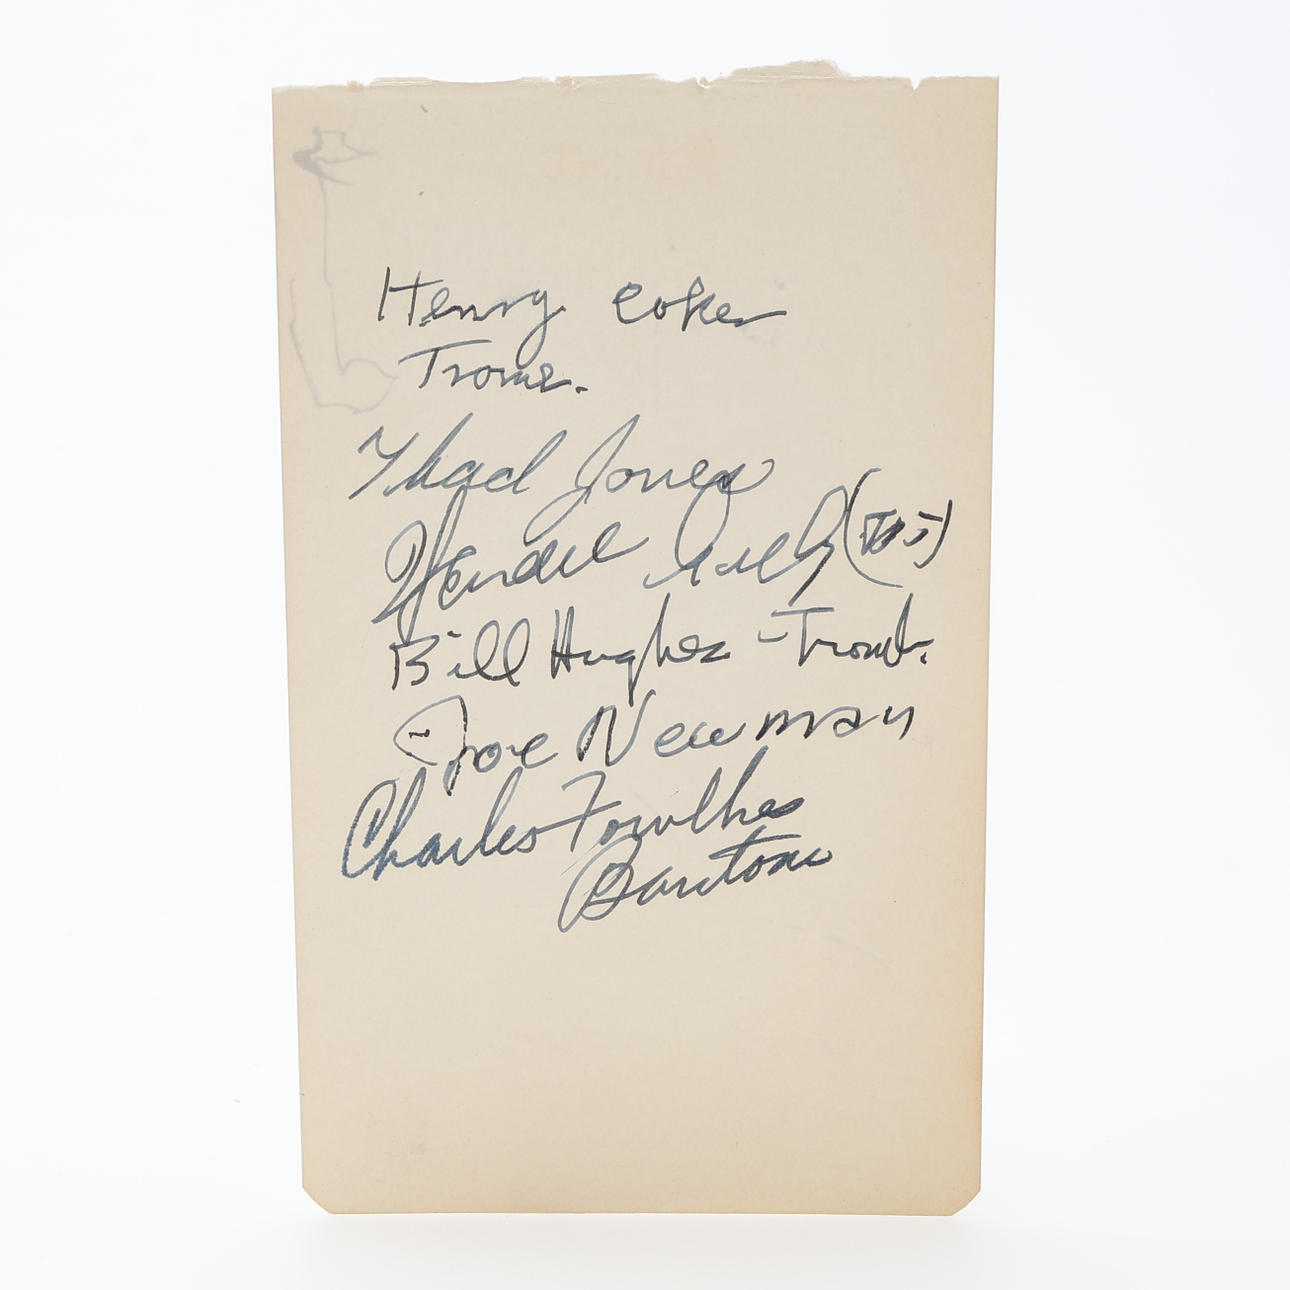 Henry Coker
Trome.
Thad Jones
Wendell Culley
Bill Hughes - Tromb.
Joe Newman
Charles Fowlkes
Baritone